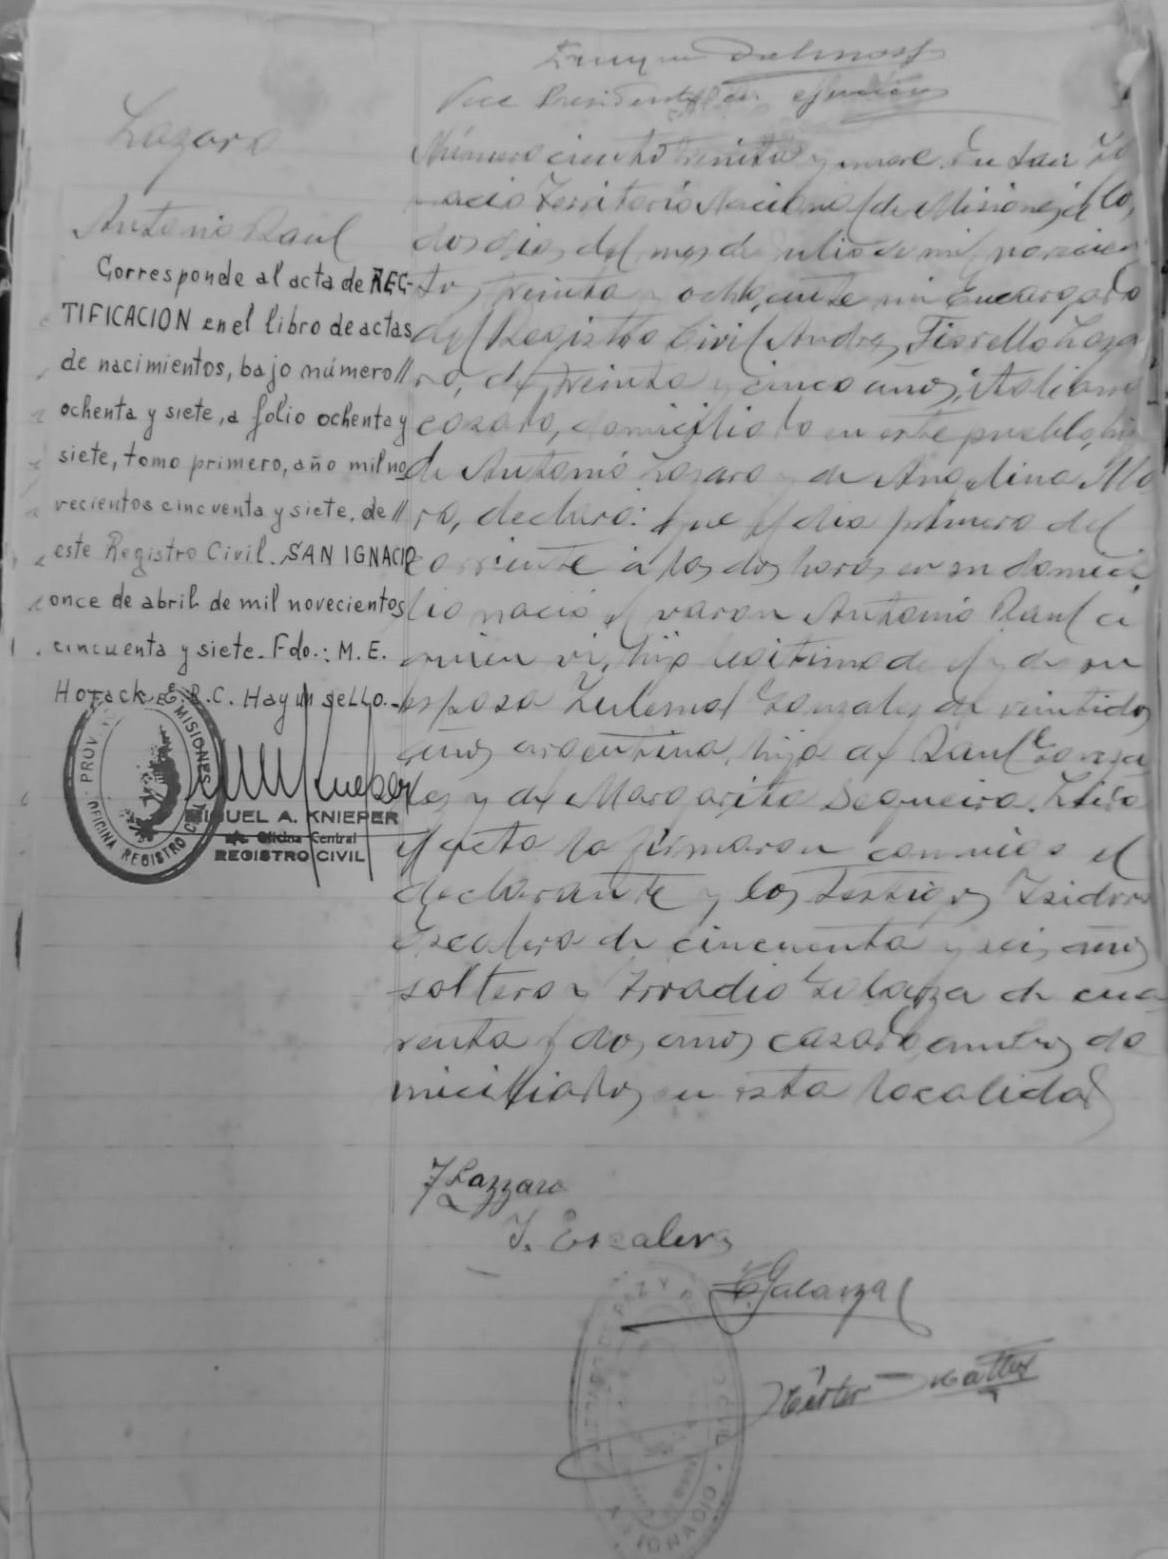 Vice Presidente en ejercicio
Lazaro
Antonio Raul
Corresponde al acta de REC-
TIFICACION en el libro de actas
de nacimientos, bajo número //
ochenta y siete, a folio ochenta y
siete, tomo primero, año mil no
vecientos cincuenta y siete, de //
este Registro Civil. SAN IGNACIO
once de abril de mil novecientos
cincuenta y siete. Fdo.: M. E.
Horack E. R.C. Hay un sello.-
PROV. DE MISIONES
OFICINA REGISTRO CIVIL
MIGUEL A. KNIEPER
Oficina Central
REGISTRO CIVIL
Número ciento treinta y nueve. En San Ig
nacio Territorio Nacional de Misiones, a lo,
dos dias del mes de Julio de mil novecien
tos treinta y ocho, ante mi Encargado
del Registro Civil Fiorello Laza
ro, de treinta y cinco años, italiano
casado, domiciliado en este pueblo, hijo
de Antonio Lazaro y de Angelina Mo
ro, declaro: que el dia primero del
corriente a las dos horas en su domici
lio nacio el varon Antonio Raul a
quien vi, hijo legitimo de el y de su
esposa Zulema Gonzalez de veintidos
años argentina, hija de Raul Gonza
lez y de Margarita Sequeira. Leida
el acta la firmaron conmigo el
declarante y los testigos Isidoro
Escalera de cincuenta y seis años
soltero y Galarza de cua
renta y dos años casado ambos do
miciliados en esta localidad
F Lazzaro
I. Escalera
Galarza